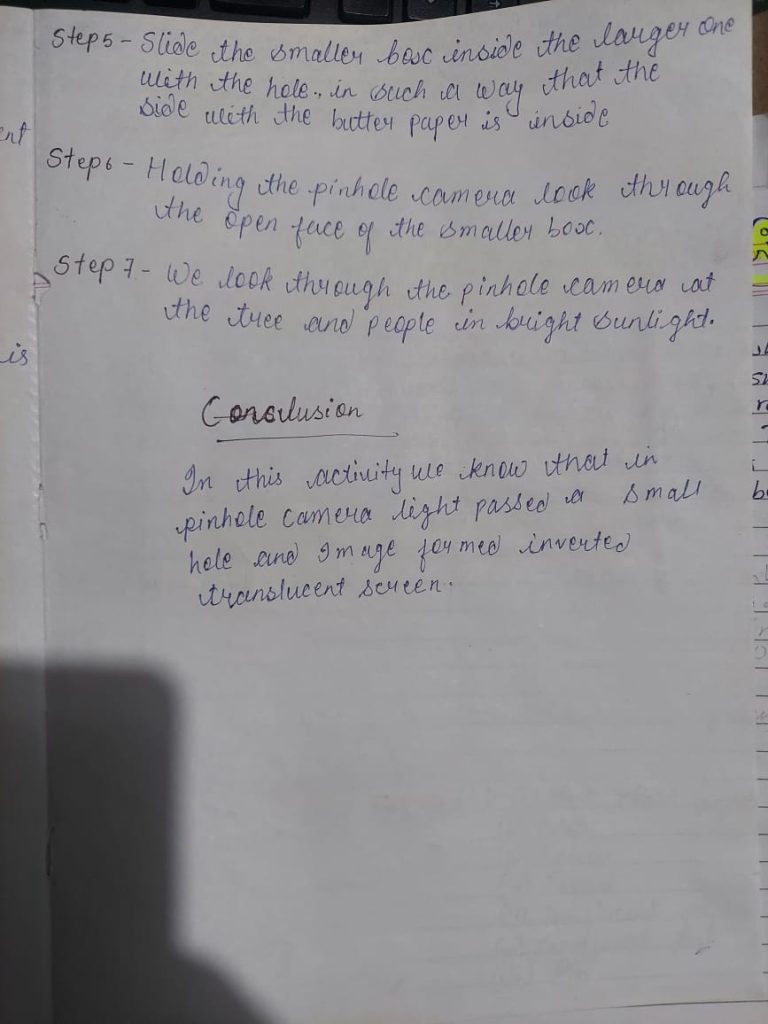 Step 5 - Slide the smaller box inside the larger one
with the hole, in such a way that the
side with the butter paper is inside
Step 6 - Holding the pinhole camera look through
the open face of the smaller box.
Step 7 - We look through the pinhole camera at
the tree and people in bright sunlight.
Conclusion
In this activity we know that in
pinhole camera light passed a small
hole and Image formed inverted
translucent screen.
is